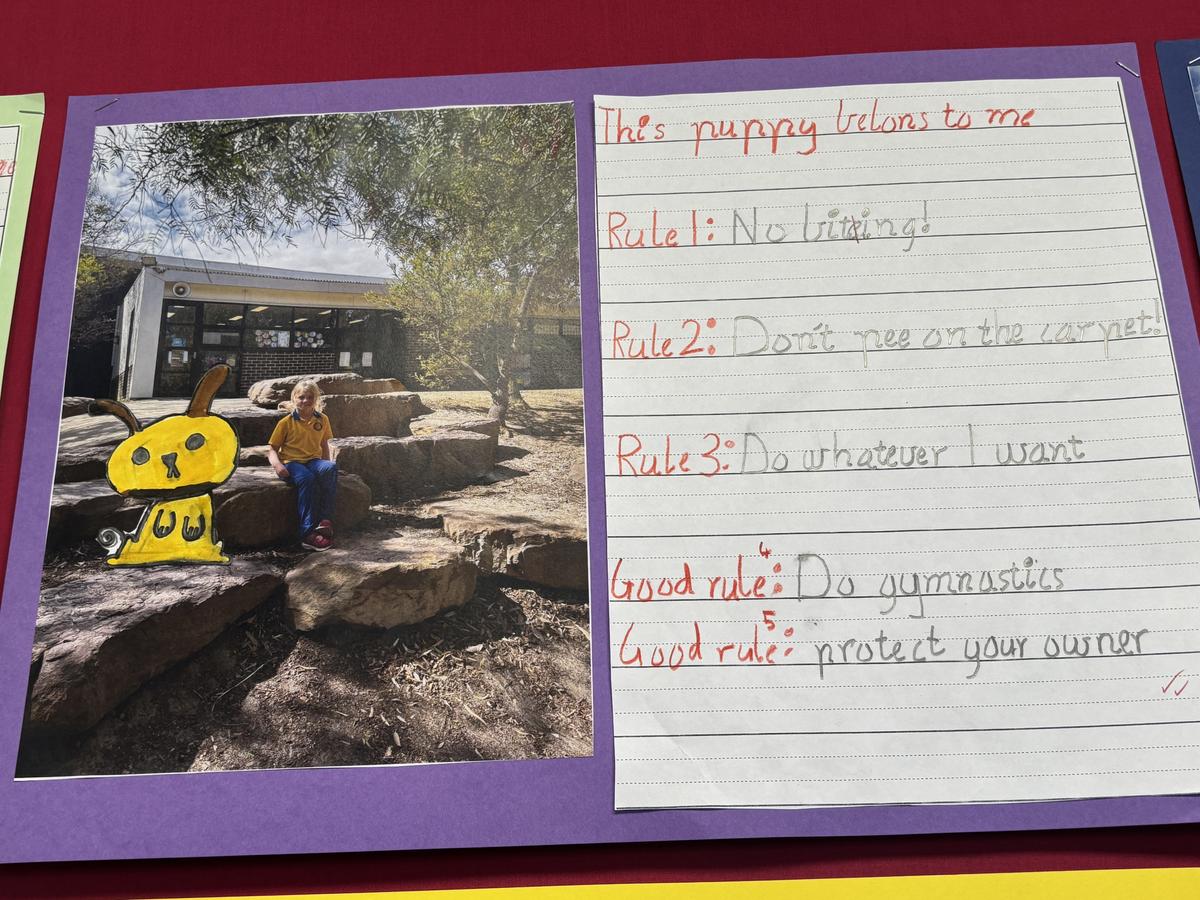 This puppy belons to me
Rule 1: No biting!
Rule 2: Don't pee on the carpet!
Rule 3: Do whatever I want
Good rule 4: Do gymnastics
Good rule 5: protect your owner